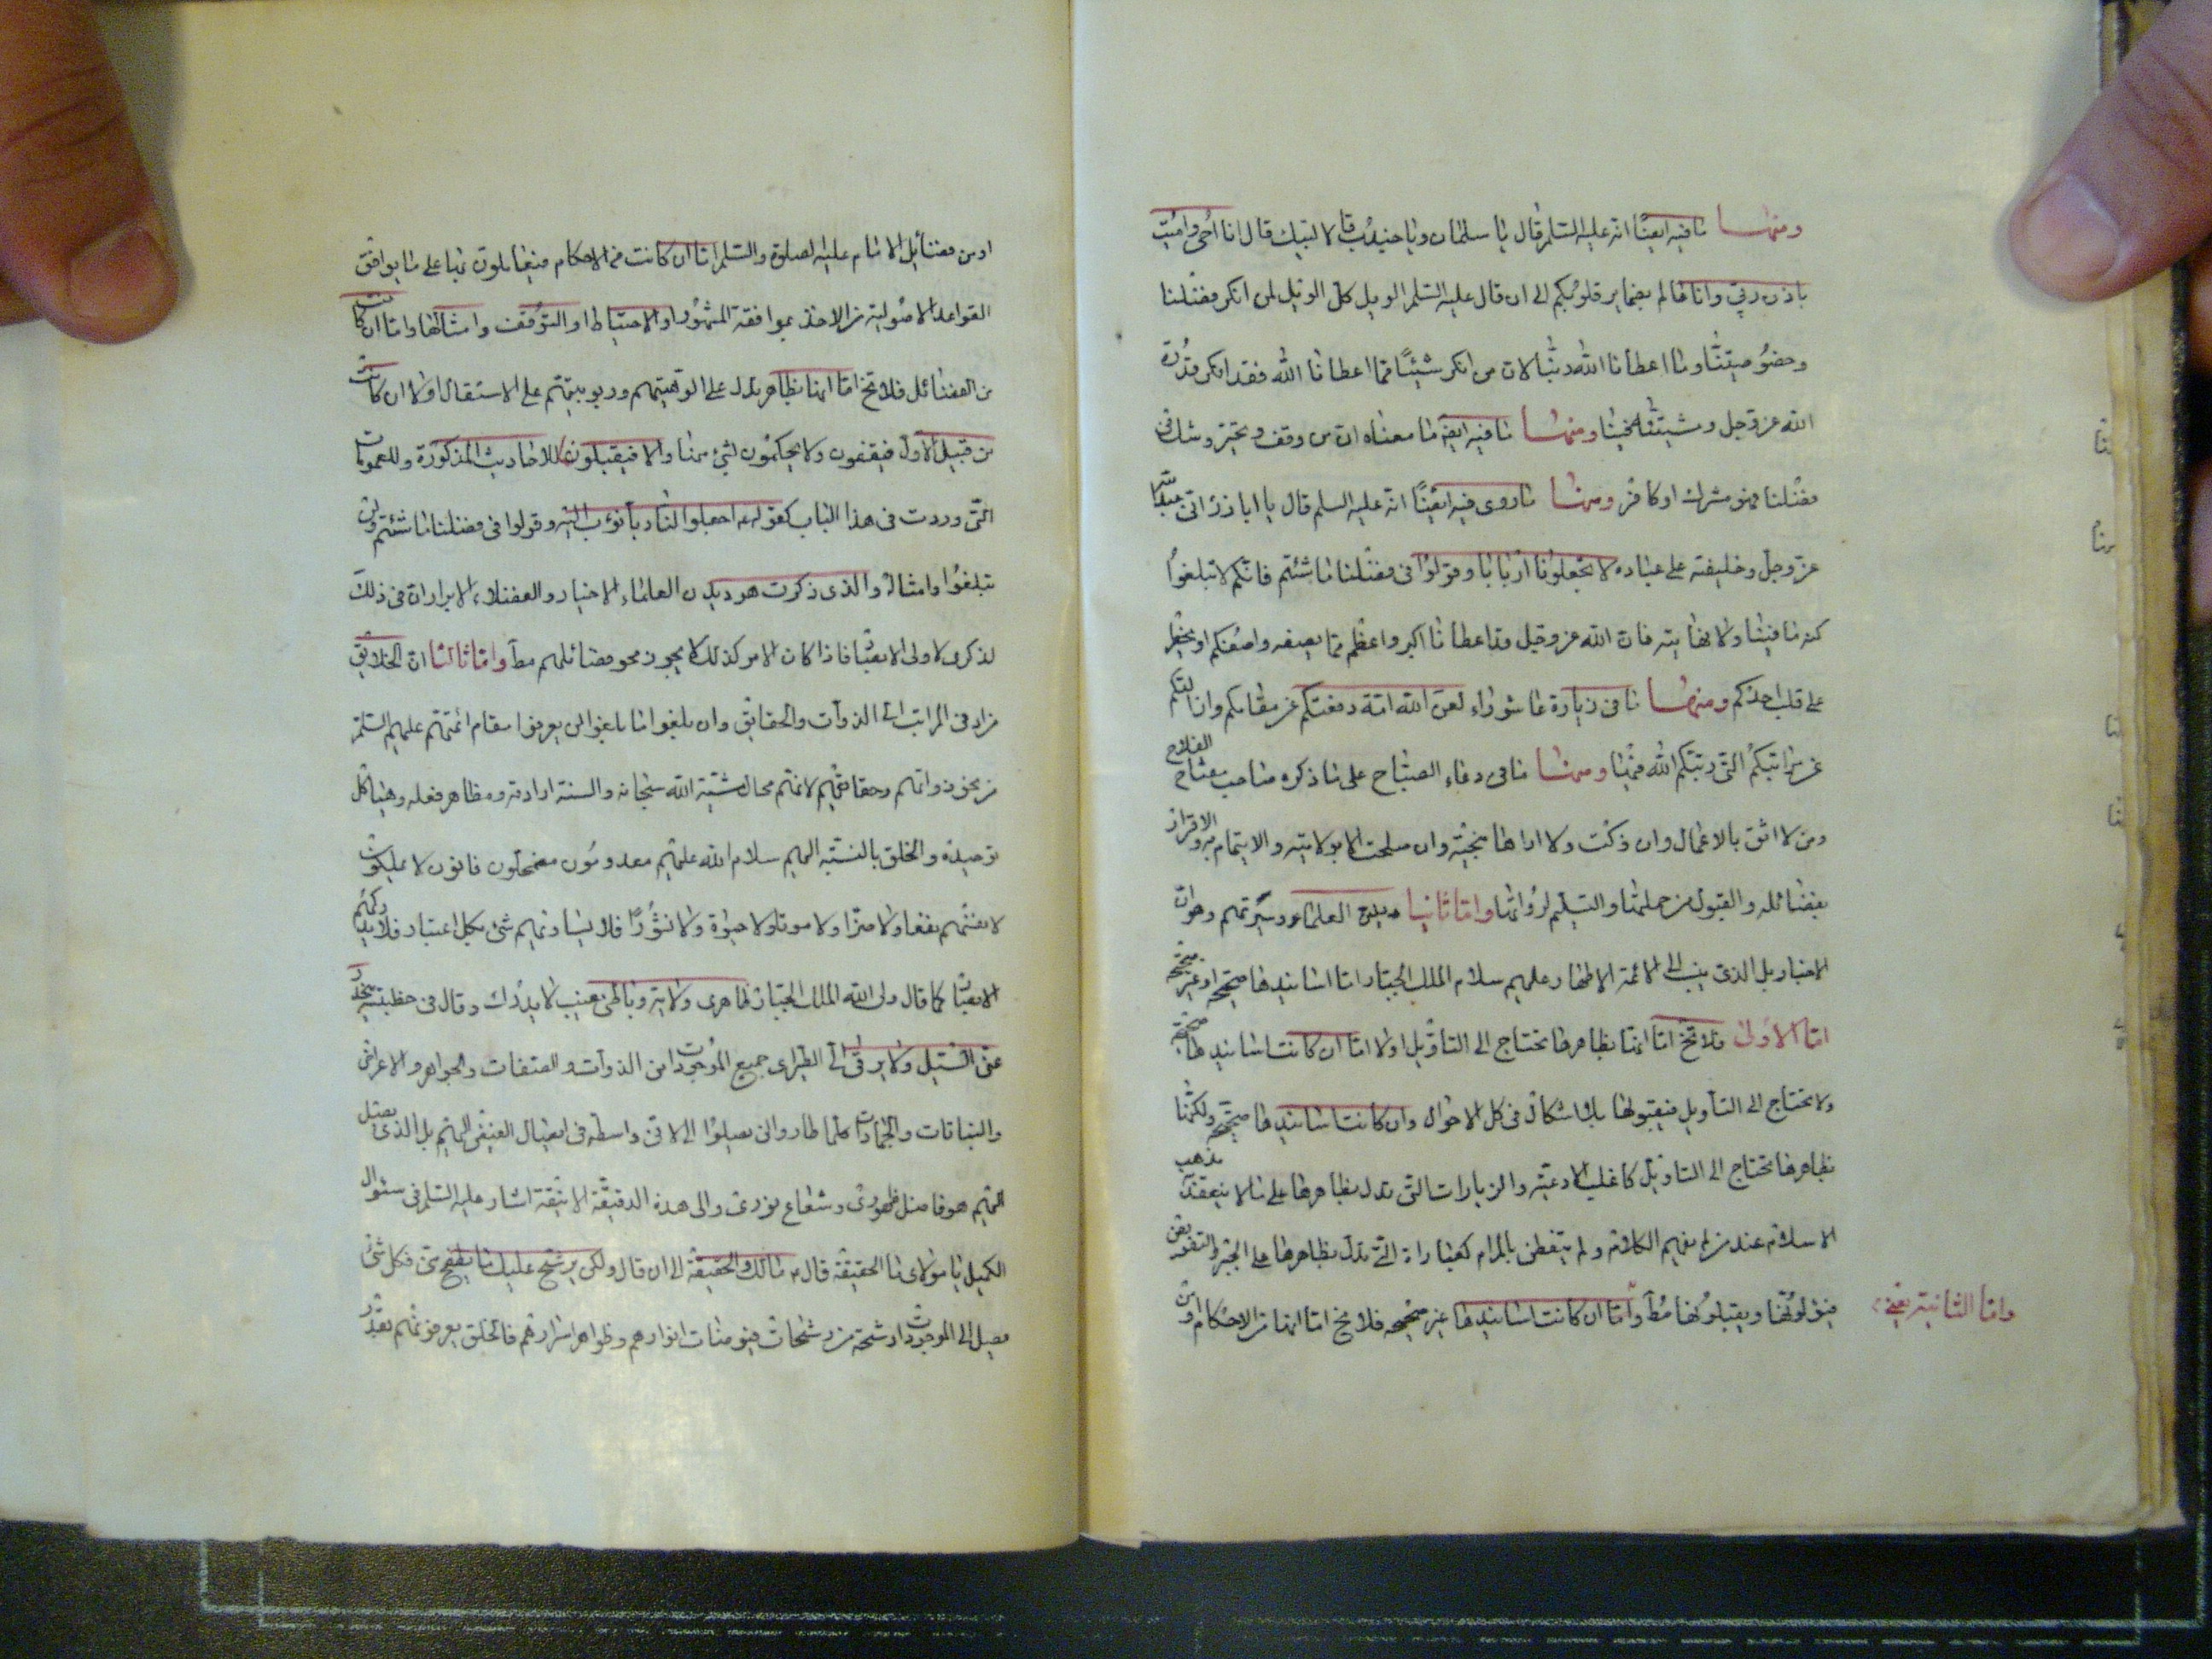 ومنها ما فيه ايضًا انه عليه السلم قال يا سلمان ويا جندب قالا لبيك قال انا احيى واميت
باذن ربي وانا عالم بضماير قلوبكم الى ان قال عليه السلم الويل كل الويل لمن انكر فضلنا
وخصوصيتنا وما اعطانا الله ربنا لان من انكر شيئًا مما اعطانا الله فقد انكر قدرة
الله عز وجل ومشيته فينا ومنها ما فيه ايضا ما معناه ان من وقف وتحير وشك في
فضلنا فهو مشرك او كافر ومنها ما روى فيه ايضًا انه عليه السلم قال يا اباذر انى عبد الله
عز وجل وخليفته على عباده لا تجعلونا اربابا وقولوا فى فضلنا ما شئتم فانكم لا تبلغوا
كنه ما فينا ولا نهايته فان الله عز وجل قد اعطانا اكبر واعظم مما يصفه واصفكم او يخطر
على قلب احدكم ومنها ما فى زيارة عاشوراء لعن الله امة دفعتكم عن مقامكم وازالتكم
عن مراتبكم التى رتبكم الله فيها ومنها ما فى دعاء الصباح على ما ذكره صاحب مفتاح الفلاح
ومن لا اثق بالاعمال وان زكت ولا اراها منجية وان صلحت الا بولايته والايتمام به والاقرار
بفضائله والقبول من حملتها والتسليم لرواتها واما ثانيا ديدن العلماء وسيرتهم وهو ان
الاخبار بل الذى ينسب الى الائمة الاطهار عليهم سلام الملك الجبار اما اسانيدها صحيحة او غير صحيحة
اما الاولى فلا تخ اما انها بظاهرها تحتاج الى التاويل اولا اما ان كانت اسانيدها صحيحة
ولا تحتاج الى التاويل فيقبلوها بلا اشكال فى كل الاحوال وان كانت اسانيدها صحيحة ولكنها
بظاهرها تحتاج الى التاويل كاغلب الادعية والزيارات التى تدل بظاهرها على ما لا ينعقد مذهب
الاسلام عند من لم يفهم الكلام ولم يتفطن بالمرام كعبارات التى تدل بظاهرها على الجبر والتفويض
فيؤلونها ويقبلونها مط واما ان كانت اسانيدها غير صحيحة فلا يخ اما انها من الاحكام او من
واما الثانية يعنى
او من فضائل الامام عليه الصلوة والسلم اما ان كانت من الاحكام فيعاملون بها على ما يوافق
القواعد الاصولية من الاخذ بموافقة المشهور او الاحتياط او التوقف وامثالها واما ان كانت
من الفضائل فلا تخ اما انها بظاهر تدل على الوهيتهم وربوبيتهم على الاستقلال اولا ان كانت
من قبيل الاول فيقفون ولا يحكمون لشئ منها والا فيقبلون للاحاديث المذكورة وللعمومات
التى وردت فى هذا الباب كقولهم اجعلوا لنا ربا نؤب اليه وقولوا فى فضلنا ما شئتم ولن
تبلغوا وامثاله والذى ذكرت هو ديدن العلماء الاخيار والفضلاء الابرار ان فى ذلك
لذكرى لاولى الابصار فاذا كان الامر كذلك لا يجوز محو فضائلهم مط واما ثالثا ان الخلايق
من ادنى المراتب الى الذوات والحقايق وان بلغوا ما بلغوا لن يعرفوا مقام ائمتهم عليهم السلم
من نحو ذواتهم وحقايقهم لانهم محال مشية الله سبحانه والسنة ارادته ومظاهر فعله وهياكل
توحيده والخلق بالنسبة اليهم سلام الله عليهم معدومون مضمحلون فانون لا يملكون
لانفسهم نفعا ولا ضرّا ولا موتا ولا حيوة ولا نشورًا فلا يساويهم شئ بكل اعتبار فلا يدركهم
الابصار كما قال ولى الله الملك الجبار ظاهرى ولاية وباطنى غيب لا يدرك وقال فى خطبته ينحدر
عنى السيل ولا يرقى الى الطير اى جميع الموجودات من الذوات والصفات والجواهر والاعراض
والنباتات والجمادات كلما طاروا لن يصلوا الى لانى واسطة فى ايصال الفيض اليهم بل الذى يصل
اليهم هو فاضل ظهورى وشعاع نورى والى هذه الدقيقة الانيقة اشار عليه السلم فى سئوال
الكميل يا مولاى ما الحقيقة قال م مالك والحقيقة الى ان قال ولكن يرشح عليك ما يطفح منى فكل شئ
يصل الى الموجودات رشحة من رشحات فيوضات انوارهم وظواهر اسرارهم فالخلق يعرفونهم بقدر